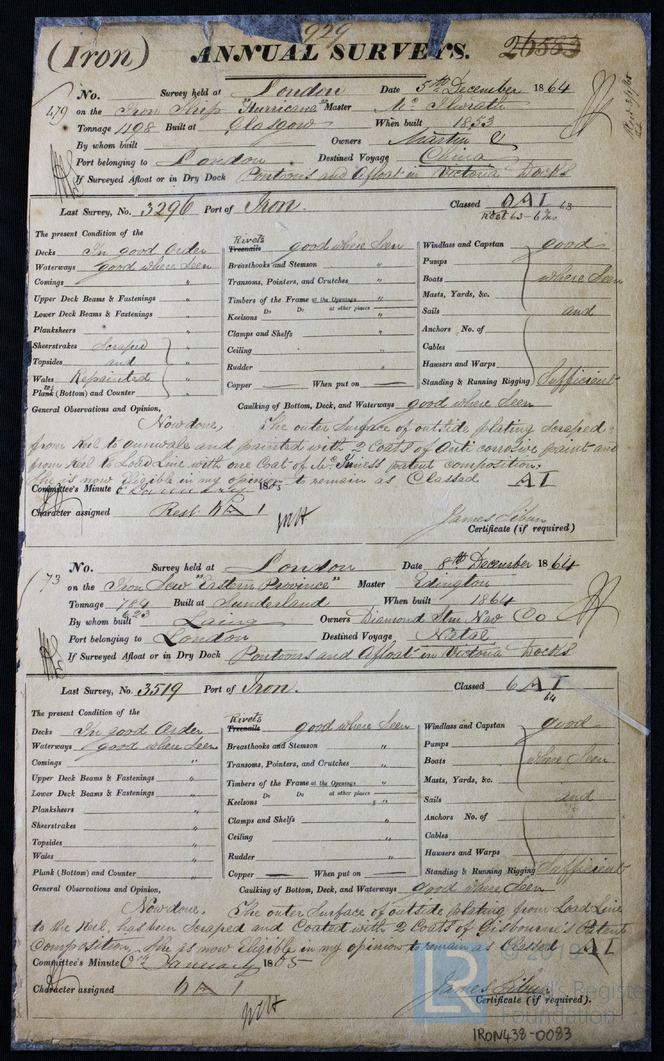 929
(Iron) ANNUAL SURVEYS. 26583
No. Survey held at London Date 5th December 1864
479 on the Iron Ship "Hurricane" Master Mc Ilwrath
Tonnage 1198 Built at Glasgow When built 1853
By whom built Owners Martin &
Port belonging to London Destined Voyage China
If Surveyed Afloat or in Dry Dock Pontoons and Afloat in Victoria Docks
Last Survey, No. 3296 Port of Iron. Classed A I 63
The present Condition of the Rivets
Decks In good Order Treenails good where Seen Windlass and Capstan good
Waterways good where Seen Breasthooks and Stemson " Pumps
Comings " Transoms, Pointers, and Crutches " Boats where Seen
Upper Deck Beams & Fastenings " Timbers of the Frame at the Openings " Masts, Yards, &c.
Lower Deck Beams & Fastenings " Keelsons Do Do at other places " Sails and
Planksheers " Clamps and Shelfs " Anchors No. of
Sheerstrakes Scraped " Ceiling " Cables
Topsides and " Rudder " Hawsers and Warps
Wales Repainted " Copper — When put on — Standing & Running Rigging Sufficient
Plank (Bottom) and Counter "
General Observations and Opinion, Caulking of Bottom, Deck, and Waterways good where Seen
Now done, The outer Surface of outside plating Scraped
from Keel to Gunwale and painted with 2 Coats of Anti corrosive paint and
from Keel to Load Line with one Coat of patent composition.
She is now Eligible in my opinion to remain as Classed A I
Committee's Minute January 1865
Character assigned A 1
James
Certificate (if required)
73 No. Survey held at London Date 8th December 1864
on the Iron Screw "Eastern Province" Master Edington
Tonnage 789 Built at Sunderland When built 1864
623
By whom built Laing Owners Diamond Stm Nav Co
Port belonging to London Destined Voyage Natal
If Surveyed Afloat or in Dry Dock Pontoons and Afloat in Victoria Docks
Last Survey, No. 3519 Port of Iron. Classed A I
64
The present Condition of the Rivets
Decks In good Order Treenails good where Seen Windlass and Capstan good
Waterways good where Seen Breasthooks and Stemson " Pumps
Comings " Transoms, Pointers, and Crutches " Boats where Seen
Upper Deck Beams & Fastenings " Timbers of the Frame at the Openings " Masts, Yards, &c.
Lower Deck Beams & Fastenings " Keelsons Do Do at other places " Sails and
Planksheers " Clamps and Shelfs " Anchors No. of
Sheerstrakes " Ceiling " Cables
Topsides " Rudder " Hawsers and Warps
Wales " Copper — When put on — Standing & Running Rigging Sufficient
Plank (Bottom) and Counter "
General Observations and Opinion, Caulking of Bottom, Deck, and Waterways good where Seen
Now done, The outer Surface of outside plating from Load Line
to the Keel, has been Scraped and Coated with 2 Coats of Gisbourne's Patent
Composition. She is now Eligible in my opinion to remain as Classed A I
Committee's Minute January 1865
Character assigned A 1
James
Certificate (if required).
LR
© 2019
Lloyd's Register
Foundation
IRON438-0083